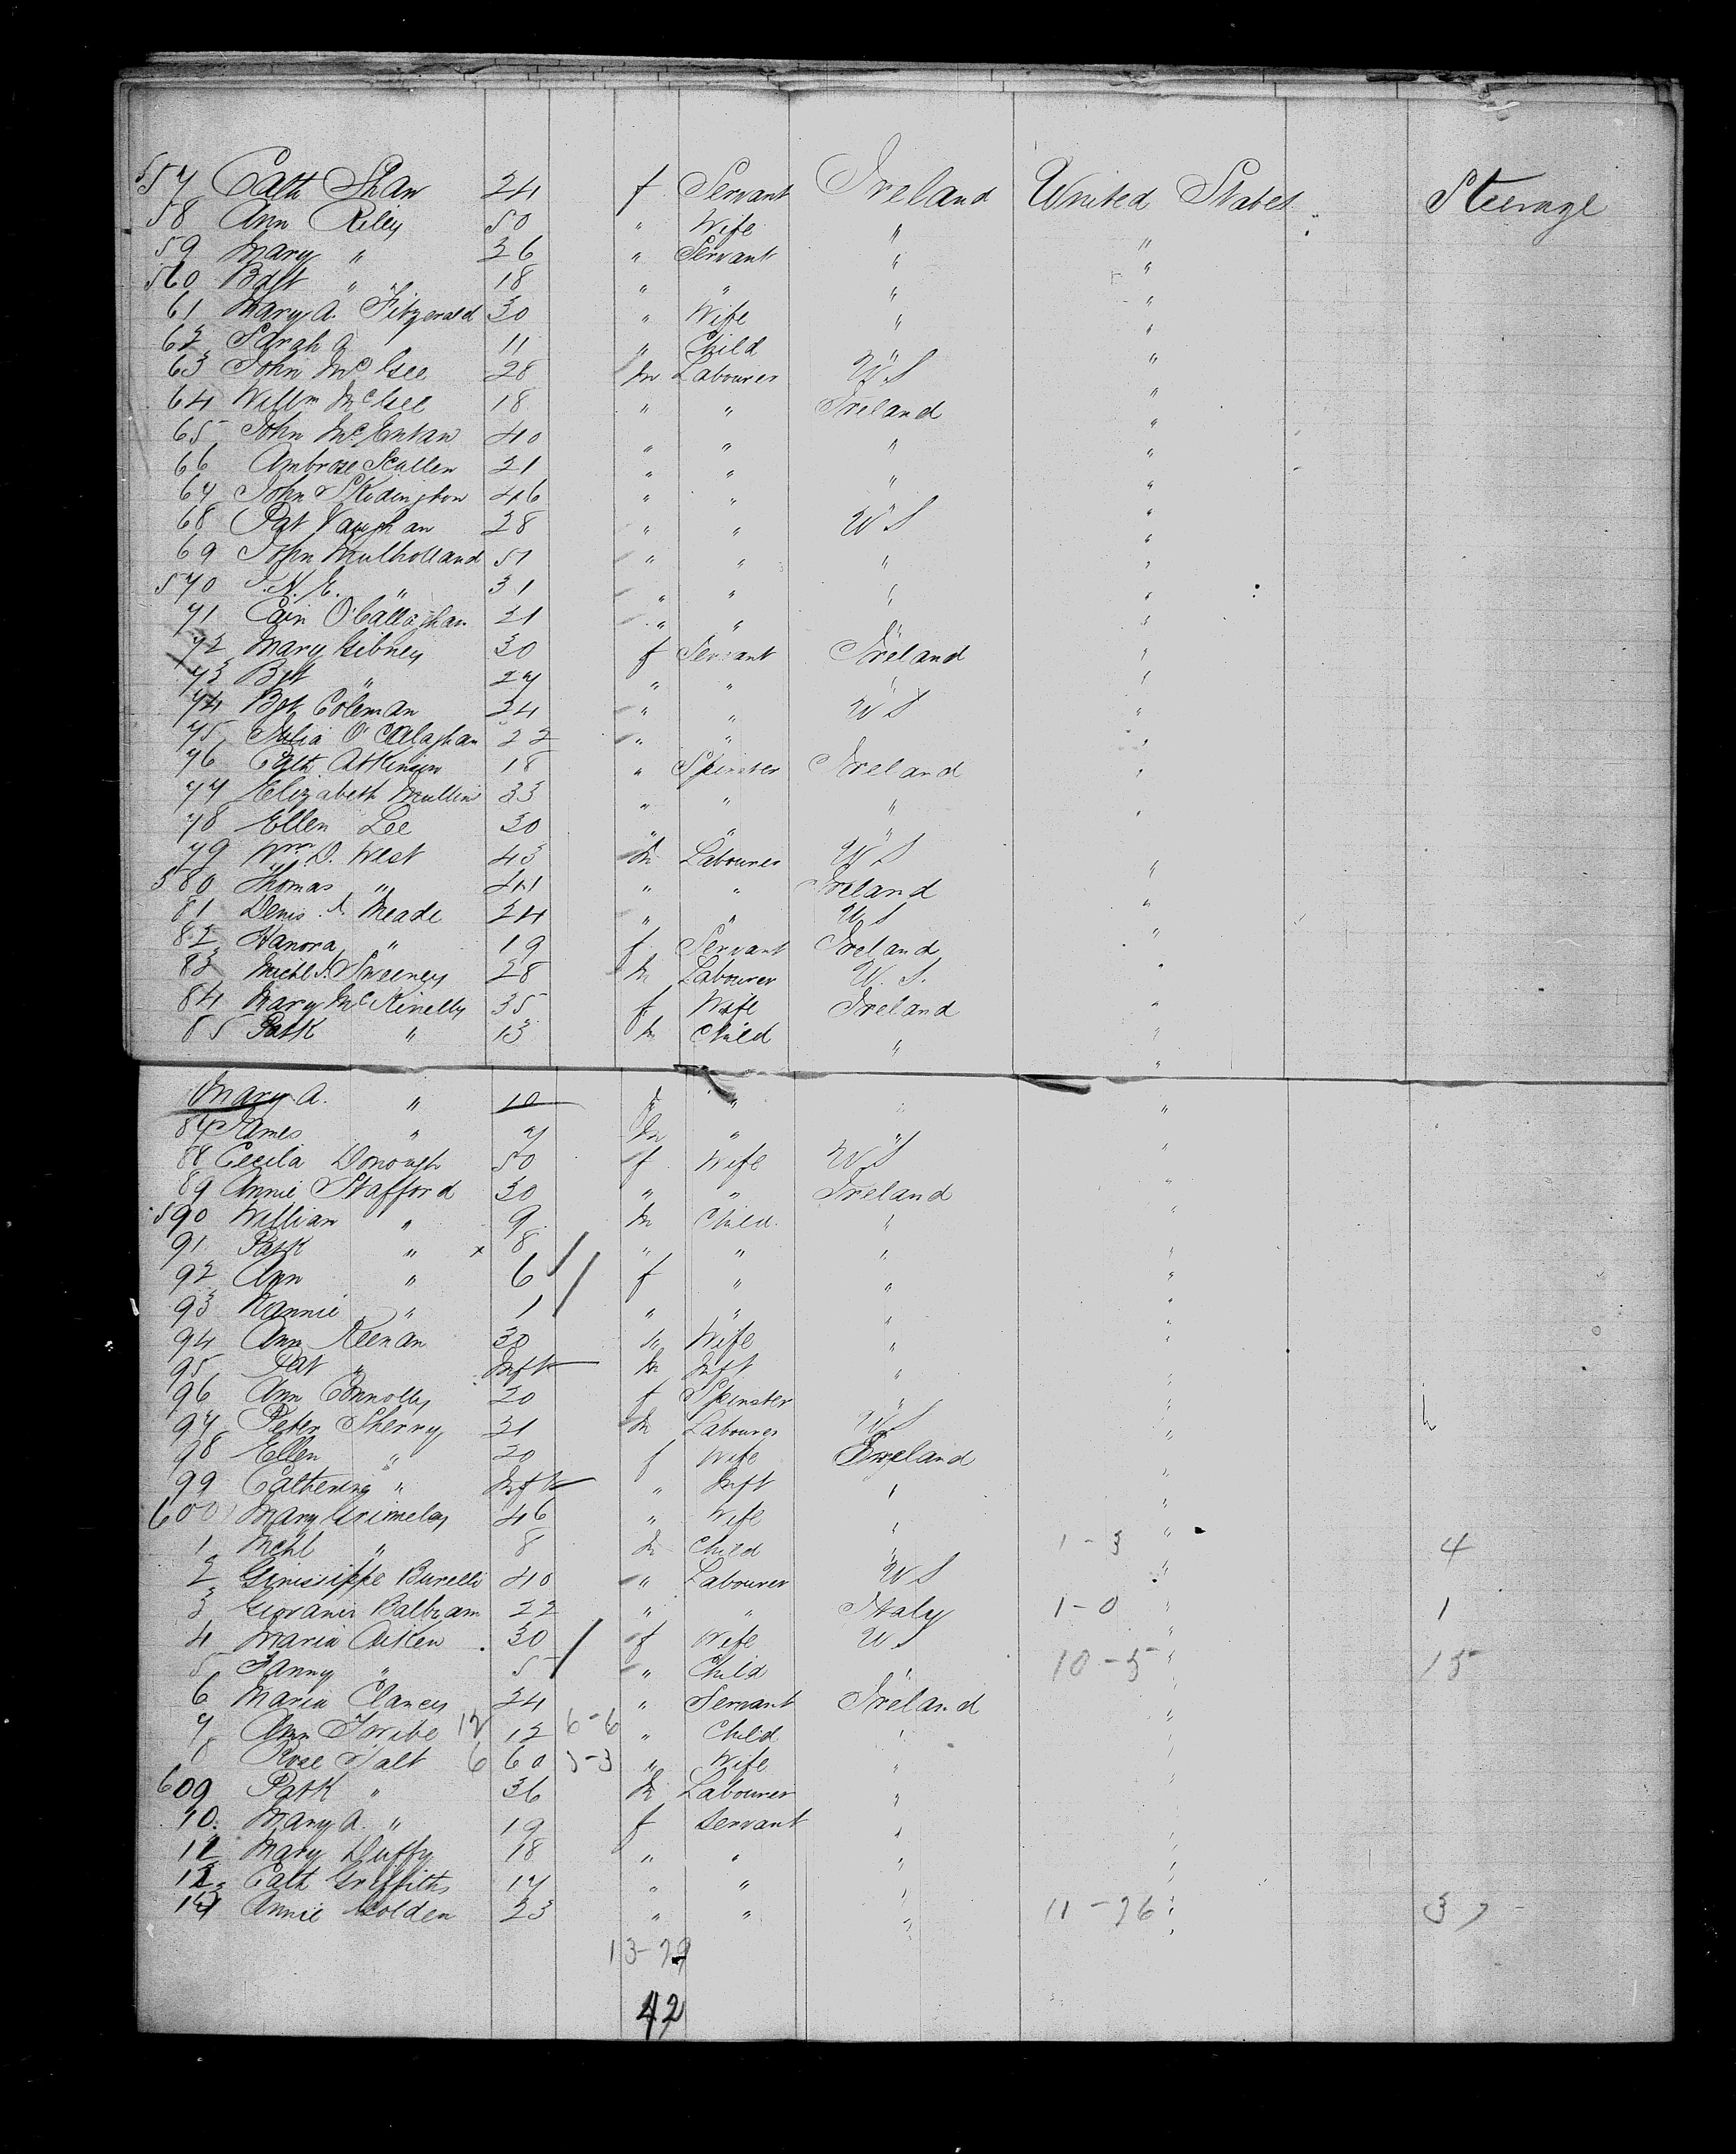 557 Cath Shaw 24 f Servant Ireland United States Steerage
58 Ann Riley 50 " Wife " "
59 Mary " 26 " Servant " "
560 Bdgt " 18 " " " "
61 Mary A. Fitzgerald 30 " Wife " "
62 Sarah A 11 " Child " "
63 John McGee 28 m Labourer U S "
64 Willm McGee 18 " " Ireland "
65 John McEntan 40 " " " "
66 Ambrose Scullen 21 " " " "
67 John Skidington 46 " " " "
68 Pat Vaughan 28 " " U S "
69 John Mulholland 51 " " " "
570 J. N. E. " 31 " " " "
71 Cain O'Callaghan 21 " " " "
72 Mary Gibney 30 f Servant Ireland "
73 Bgt " 27 " " " "
74 Bgt Coleman 24 " " U S "
75 Julia O'Callaghan 22 " " "
76 Cath Atkinson 18 " Spinster Ireland "
77 Elizabeth Mullins 33 " " " "
78 Ellen Lee 30 " " "
79 Wm D. West 43 m Labourer U S "
580 Thomas " 41 " " Ireland "
81 Denis A. Meade 24 " " U S "
82 Hanora " 19 f Servant Ireland "
83 Michl J. Sweeney 28 m Labourer U. S. "
84 Mary McKinelly 35 f Wife Ireland "
85 Patk " 13 m Child " "
Mary A. " 10 f " " "
87 James " 7 m " " "
88 Cecila Donough 50 f Wife U S "
89 Annie Stafford 30 " " Ireland "
590 William " 9 m Child " "
91 Patk " x 8 " " " "
92 Ann " 6 f " " "
93 Nannie " 1 " " " "
94 Ann Keenan 30 " Wife " "
95 Pat " Inft m Inft " "
96 Ann Connolly 20 f Spinster " "
97 Peter Sherry 21 m Labourer U S "
98 Ellen " 20 f Wife England
99 Catherine " Inft " Inft " "
600 Mary Grimeley 46 " Wife " "
1 Mchl " 8 m Child " 1-3 " 4
2 Ginissippe Burelli 40 " Labourer U S "
3 Giovanni Balbiam 22 " " Italy 1-0 " 1
4 Maria Aiken 30 f Wife U S "
5 Fanny " 5 " Child " 10-5 " 15
6 Maria Clancy 24 " Servant Ireland "
7 Ann 12 12 6-6 " Child " "
8 Rose 6 60 3-3 " Wife " "
609 Patk " 36 m Labourer " "
10. Mary A. " 19 f Servant "
11 Mary Duffy 18 " " " "
12 Cath Griffiths 17 " " " "
14 Annie Golden 23 " " " 11-26 " 37
13-29
42